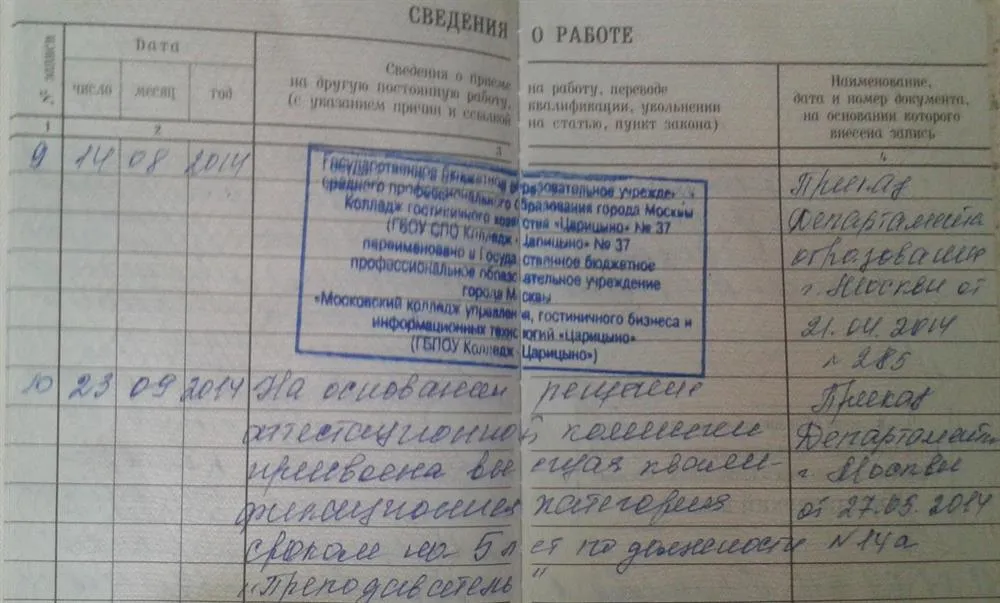 СВЕДЕНИЯ О РАБОТЕ
№ записи
Дата
число месяц год
Сведения о приеме на работу, переводе
на другую постоянную работу, квалификации, увольнении
(с указанием причин и ссылкой на статью, пункт закона)
Наименование,
дата и номер документа,
на основании которого
внесена запись
1 2 3 4
9 14 08 2014
Государственное бюджетное образовательное учрежде
среднего профессионального образования города Москвы
Колледж гостиничного хозяйства «Царицыно» № 37
(ГБОУ СПО Колледж «Царицыно» № 37
переименовано в Государственное бюджетное
профессиональное образовательное учреждение
города Москвы
«Московский колледж управления, гостиничного бизнеса и
информационных технологий «Царицыно»
(ГБПОУ Колледж «Царицыно»)
Приказ
Департамента
образования
г. Москвы от
21.04.2014
№ 285
10 23 09 2014 На основании решения
аттестационной комиссии
присвоена высшая квали-
фикационная категория
сроком на 5 лет по должности
"Преподаватель"
Приказ
Департамента
г. Москвы
от 27.05.2014
№ 14а